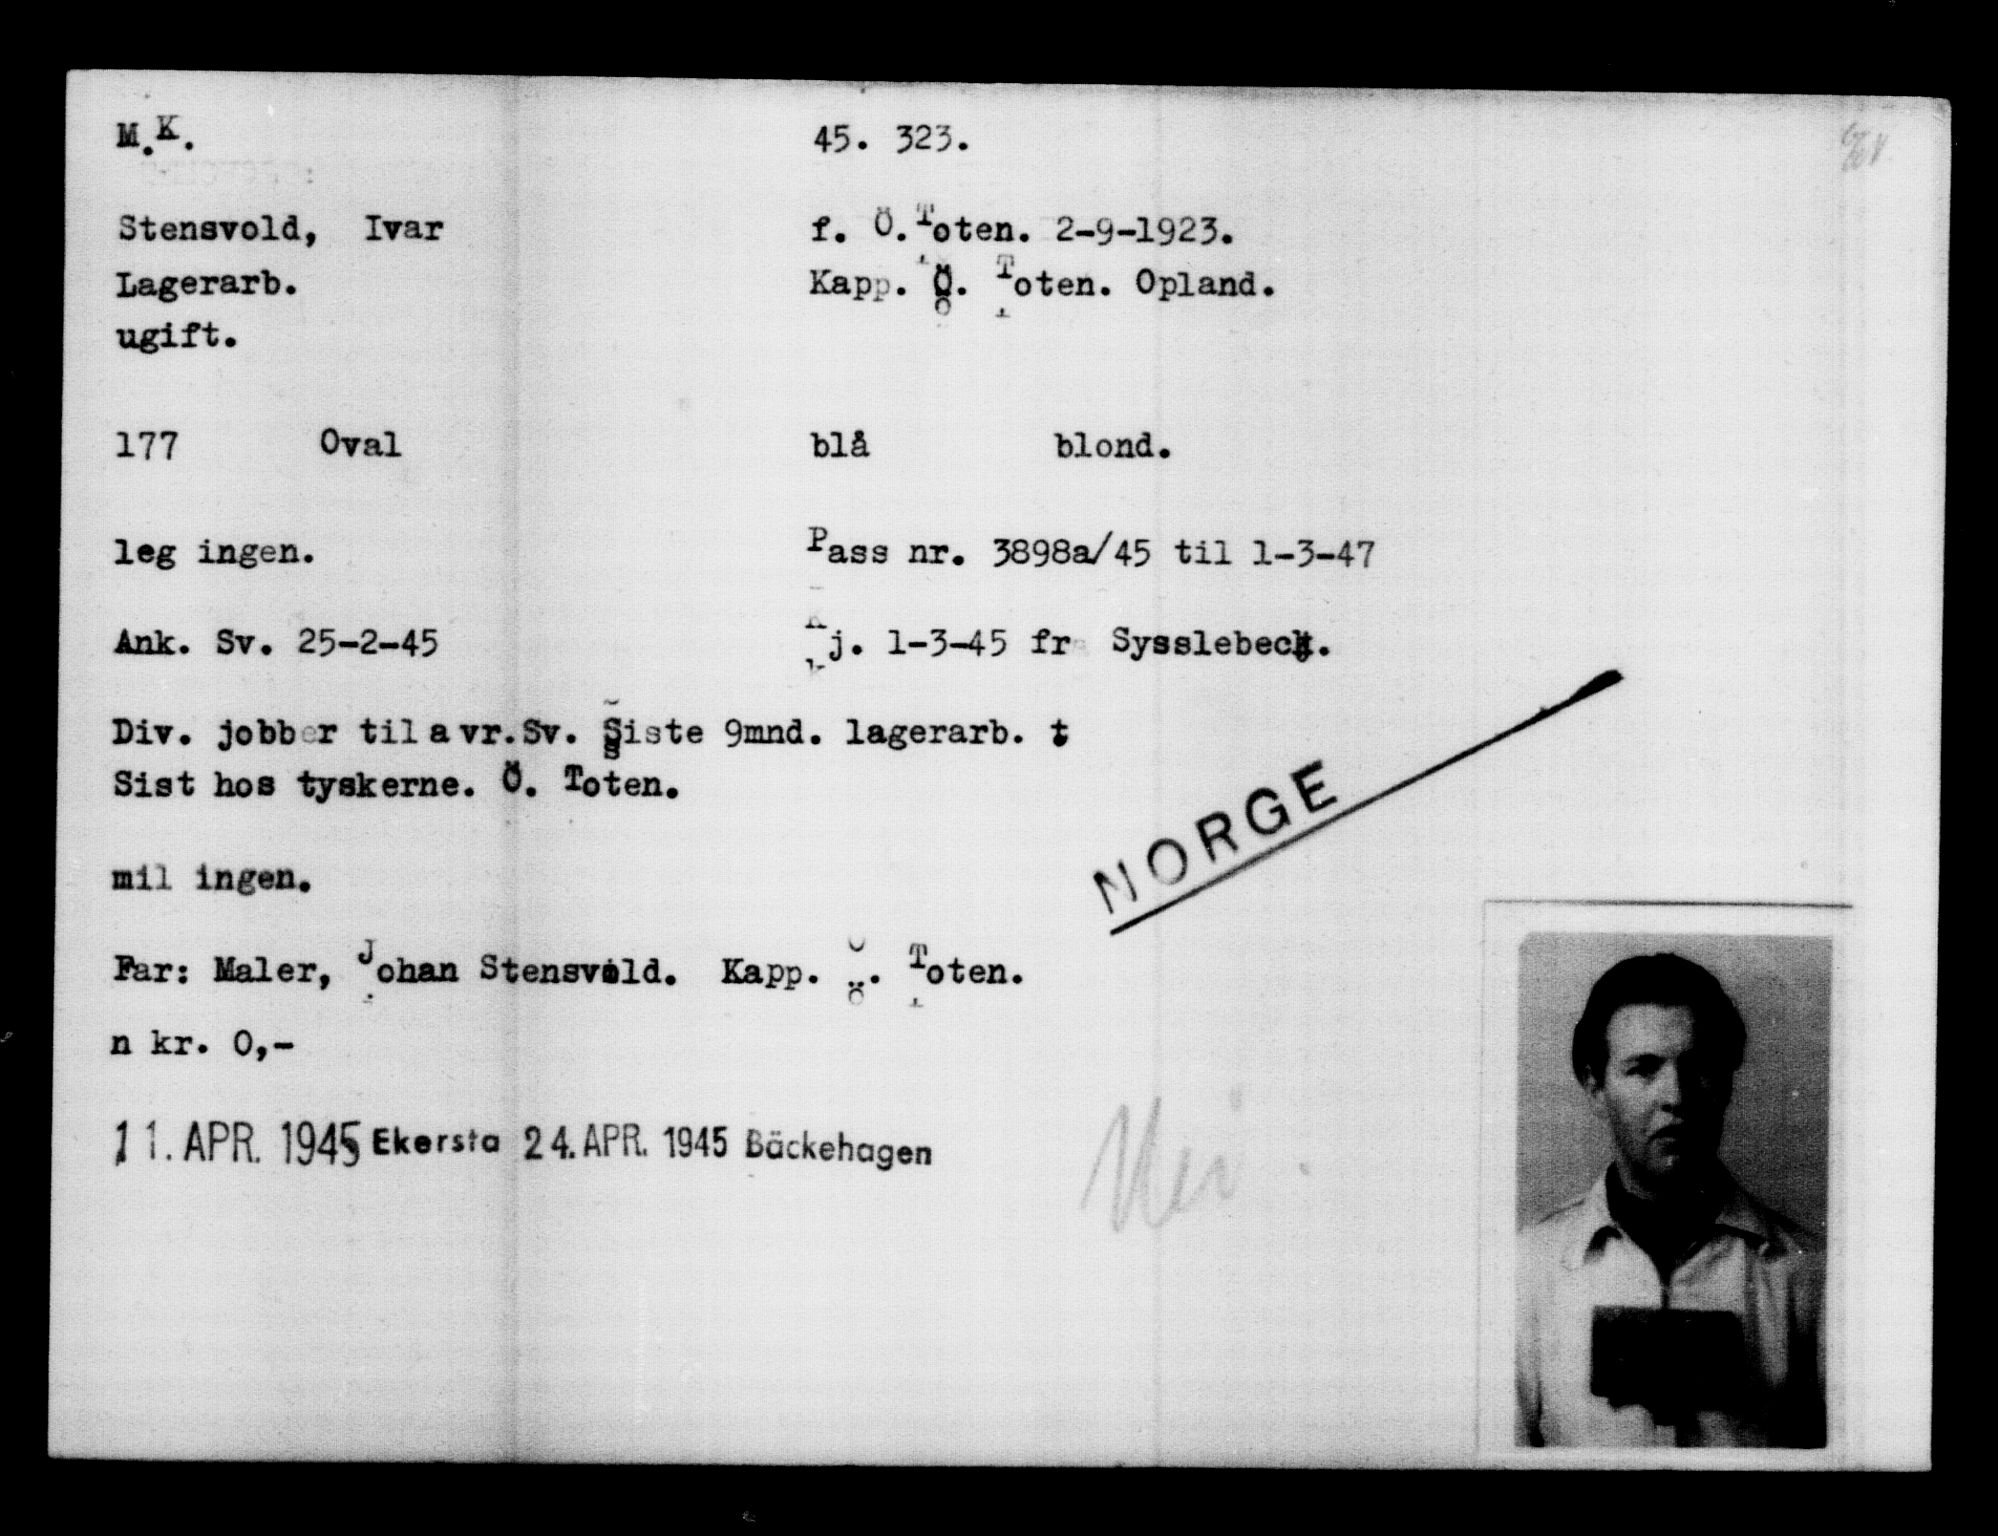 M.K. 45. 323.
Stensvold, Ivar f. Ö.Toten. 2-9-1923.
Lagerarb. Kapp. Ö. Toten. Opland.
ugift.
177 Oval blå blond.
leg ingen. Pass nr. 3898a/45 til 1-3-47
Ank. Sv. 25-2-45 Kj. 1-3-45 fra Sysslebeck.
Div. jobber til avr.Sv. Siste 9mnd. lagerarb. t
Sist hos tyskerne. Ö. Toten.
NORGE
mil ingen.
Far: Maler, Johan Stensvold. Kapp. Ö. Toten.
n kr. 0,-
11. APR. 1945 Ekersta 24. APR. 1945 Bäckehagen
Nei.